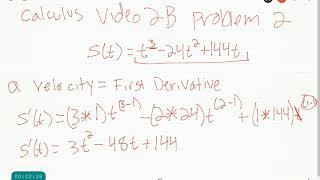 Calculus Video 2B Problem 2
S(t) = t³-24t²+144t
a velocity = First Derivative
S'(t) = (3*1)t^(3-1) - (2*24)t^(2-1) + (1*144)t^(1-1)
S'(t) = 3t² - 48t + 144
00:02:28